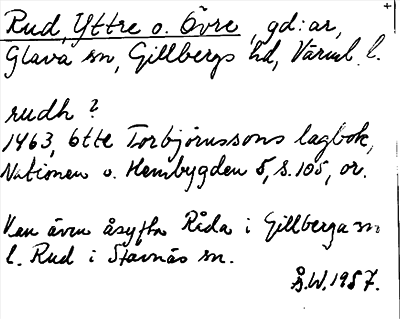 Rud, Yttre o. Övre, gd:ar,
Glava sn, Gillbergs hd, Värml. l.
rudh ?
1463, Otte Torbjörnssons lagbok,
Nationen o. Hembygden 5, s. 105, or.
Kan även åsyfta Råda i Gillberga sn
l. Rud i Stavnäs sn.
Å.W. 1987.